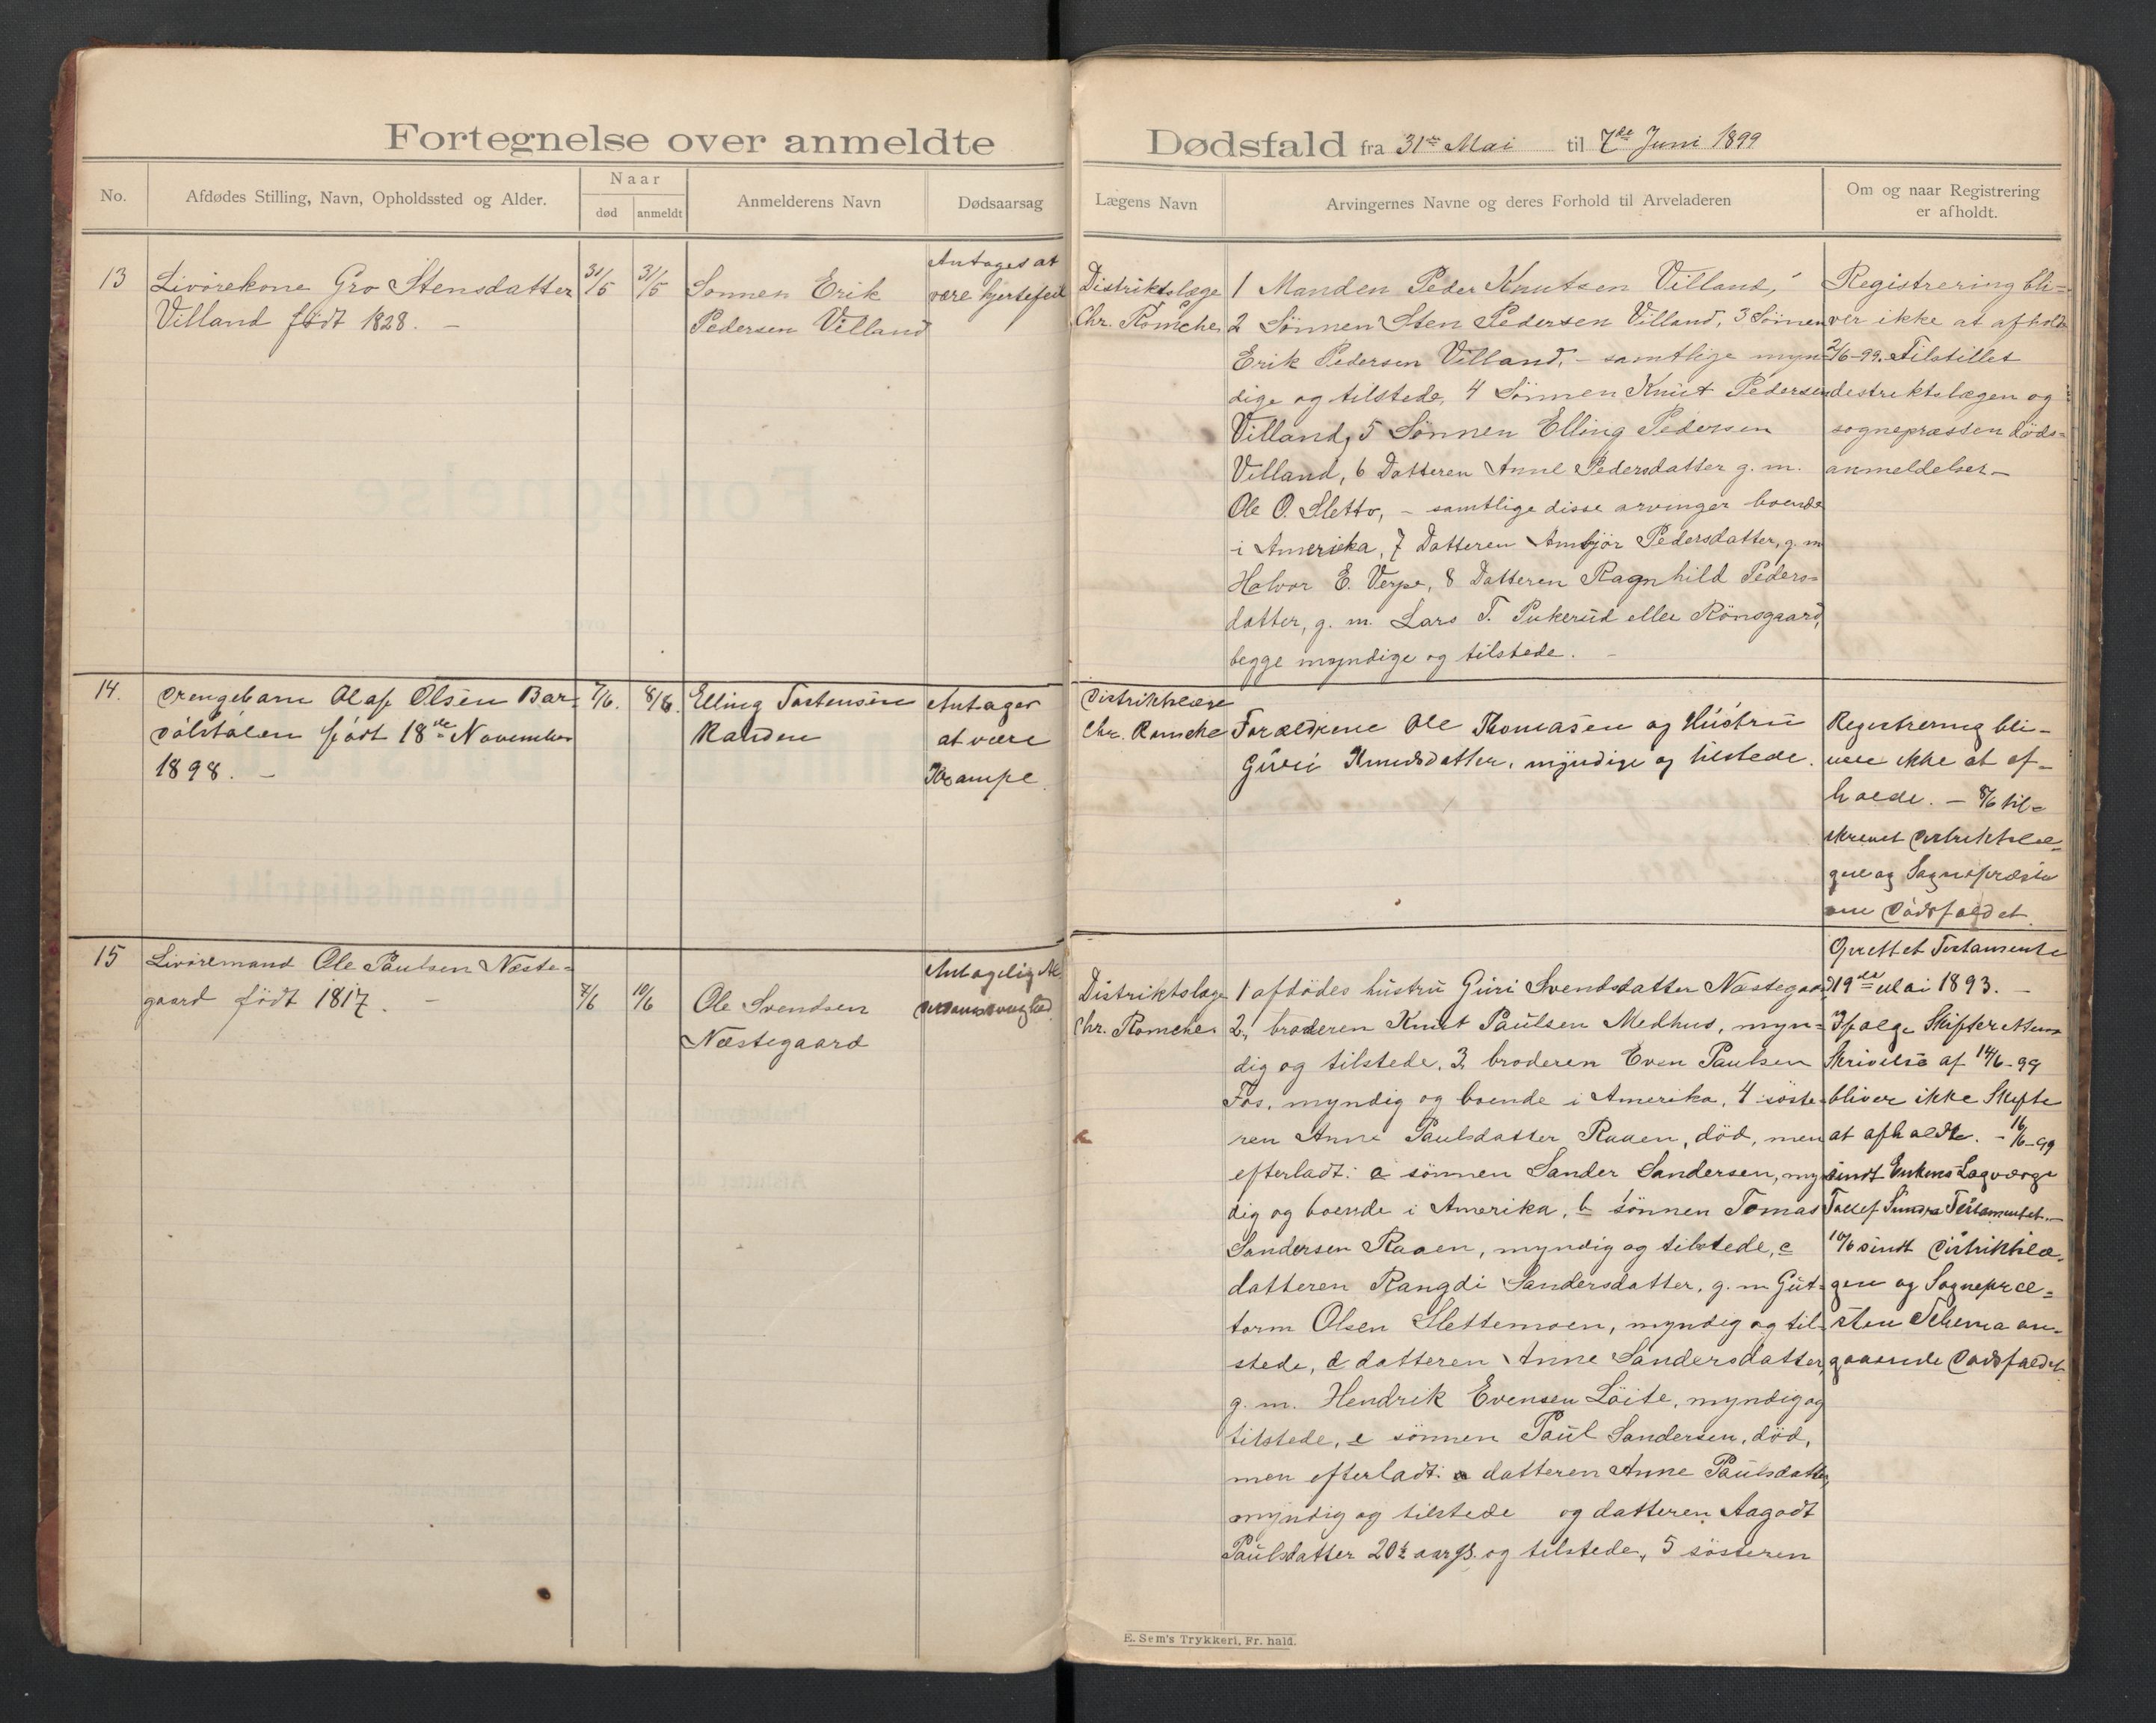 Fortegnelse over anmeldte
Dødsfald fra 31te Mai til 7de Juni 1899
No.
Afdødes Stilling, Navn, Opholdssted og Alder.
Naar
død
anmeldt
Anmelderens Navn
Dødsaarsag
Lægens Navn
Arvingernes Navne og deres Forhold til Arveladeren
Om og naar Registrering
er afholdt.
13
Livörekone Gro Stensdatter
Villand født 1828. –
31/5
31/5
Sønnen Erik
Pedersen Villand
Antages at
være hjertefeil
Distriktslæge
Chr. Romcke
1 Manden Peder Knutsen Villand,
2 Sönnen Sten Pedersen Villand, 3 Sönnen
Erik Pedersen Villand, – samtlige myn-
dige og tilstede, 4 Sönnen Knut Pedersen
Villand, 5 Sönnen Elling Pedersen
Villand, 6 Datteren Anne Pedersdatter g. m.
Ole O. Sletto, – samtlige disse arvinger boende
i Amerika, 7 Datteren Ambjör Pedersdatter, g. m
Halvor E. Verpe, 8 Datteren Ragnhild Peders-
datter, g. m. Lars T. Pukerud eller Rönsgaard,
begge myndige og tilstede. –
Registrering bli-
ver ikke at afhold
2/6-99. Tilstillet
destriktslægen og
sognepræsten döds-
anmeldelser –
14.
Drengebarn Olaf Olsen Bar-
dölstölen født 18de November
1898. –
7/6.
8/6.
Elling Tostensen
Randen
Antager
at være
Krampe.
Distriktslæge
Chr. Romcke
Forældrene Ole Thomasen og Hustru
Guri Knudsdatter, myndige og tilstede.
Registrering bli-
ver ikke at af-
holde. – 8/6 til-
skrevet Distriktslæ-
gen og Sognepræsten
om Dödsfaldet.
15
Livöremand Ole Paulsen Næste-
gaard født 1817. –
7/6
10/6
Ole Svendsen
Næstegaard
Antagelig Al-
derdomssvaghed.
Distriktslæge
Chr. Romcke
1 afdödes hustru Guri Svendsdatter Næstegaard
2, broderen Knut Paulsen Medhus, myn-
dig og tilstede, 3, broderen Even Paulsen
Fos, myndig og boende i Amerika, 4 söste-
ren Anne Paulsdatter Raaen, död, men
efterladt: a sönnen Sander Sandersen, myn
dig og boende i Amerika, b sönnen Tomas
Sandersen Raaen, myndig og tilstede, c
datteren Rangdi Sandersdatter, g. m Gut-
torm Olsen Slettemoen, myndig og til-
stede, d datteren Anne Sandersdatter,
g. m. Hendrik Evensen Löite, myndig og
tilstede, e sönnen Paul Sandersen, död,
men efterladt: a datteren Anne Paulsdatter,
myndig og tilstede og datteren Aagodt
Paulsdatter 20½ aar gl. og tilstede, 5 sösteren
Oprettet Testamente
19de Mai 1893. –
Ifölge Skifterettens
Skrivelse af 14/6-99
bliver ikke Skifte
at afholdte. – 16/6-99
sendt Enkens Lagværge
Tollef Sundre Testamentet. –
10/6 sendt Distriktslæ-
gen og Sognepræ-
sten Schema an-
gaaende Dödsfaldet
E. Sem's Trykkeri, Fr. hald.